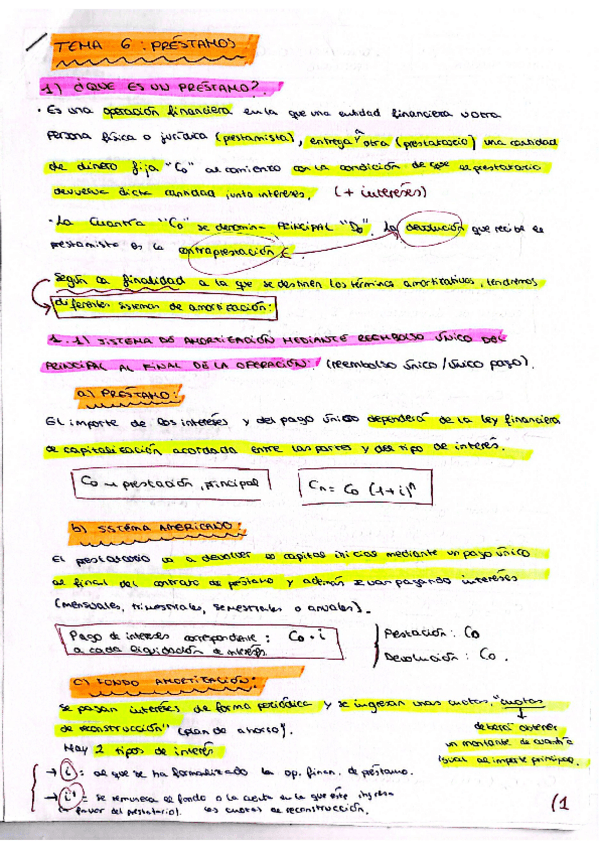 TEMA 6 : PRÉSTAMOS
1) ¿QUE ES UN PRÉSTAMO?
· Es una operación financiera en la que una entidad financiera u otra
persona física o jurídica (prestamista), entrega a otra (prestatario) una cantidad
de dinero fija "Co" al comienzo con la condición de que el prestatario
devuelva dicha cantidad junto intereses. (+ intereses)
· La cuantía "Co" se denomina PRINCIPAL "Do". La devolución que recibe el
prestamista es la contraprestación
Según la finalidad a la que se destinen los términos amortizativos, tendremos
diferentes sistemas de amortización:
1.1) SISTEMA DE AMORTIZACIÓN MEDIANTE REEMBOLSO ÚNICO DEL
PRINCIPAL AL FINAL DE LA OPERACIÓN: (reembolso único / único pago).
a) PRÉSTAMO:
EL importe de los intereses y del pago único dependerá de la ley financiera
de capitalización acordada entre las partes y del tipo de interés.
Co → prestación, principal
Cn = Co (1+i)^n
b) SISTEMA AMERICANO:
EL prestatario va a devolver el capital inicial mediante un pago único
al final del contrato de préstamo y además se van pagando intereses
(mensuales, trimestrales, semestrales o anuales).
Pago de intereses correspondiente : Co · i
a cada liquidación de intereses.
Prestación : Co
Devolución : Co .
c) FONDO AMORTIZACIÓN:
Se pagan intereses de forma periódica y se ingresan unas cuotas, "cuotas
de reconstrucción" (plan de ahorro).
deberá obtener
un montante de cuantía
igual al importe principal.
Hay 2 tipos de interés
→ i : al que se ha formalizado la op. finan. de préstamo.
→ i' = se remunera el fondo o la cuenta en la que éste ingresa
(a favor del prestatario). las cuotas de reconstrucción.
(1